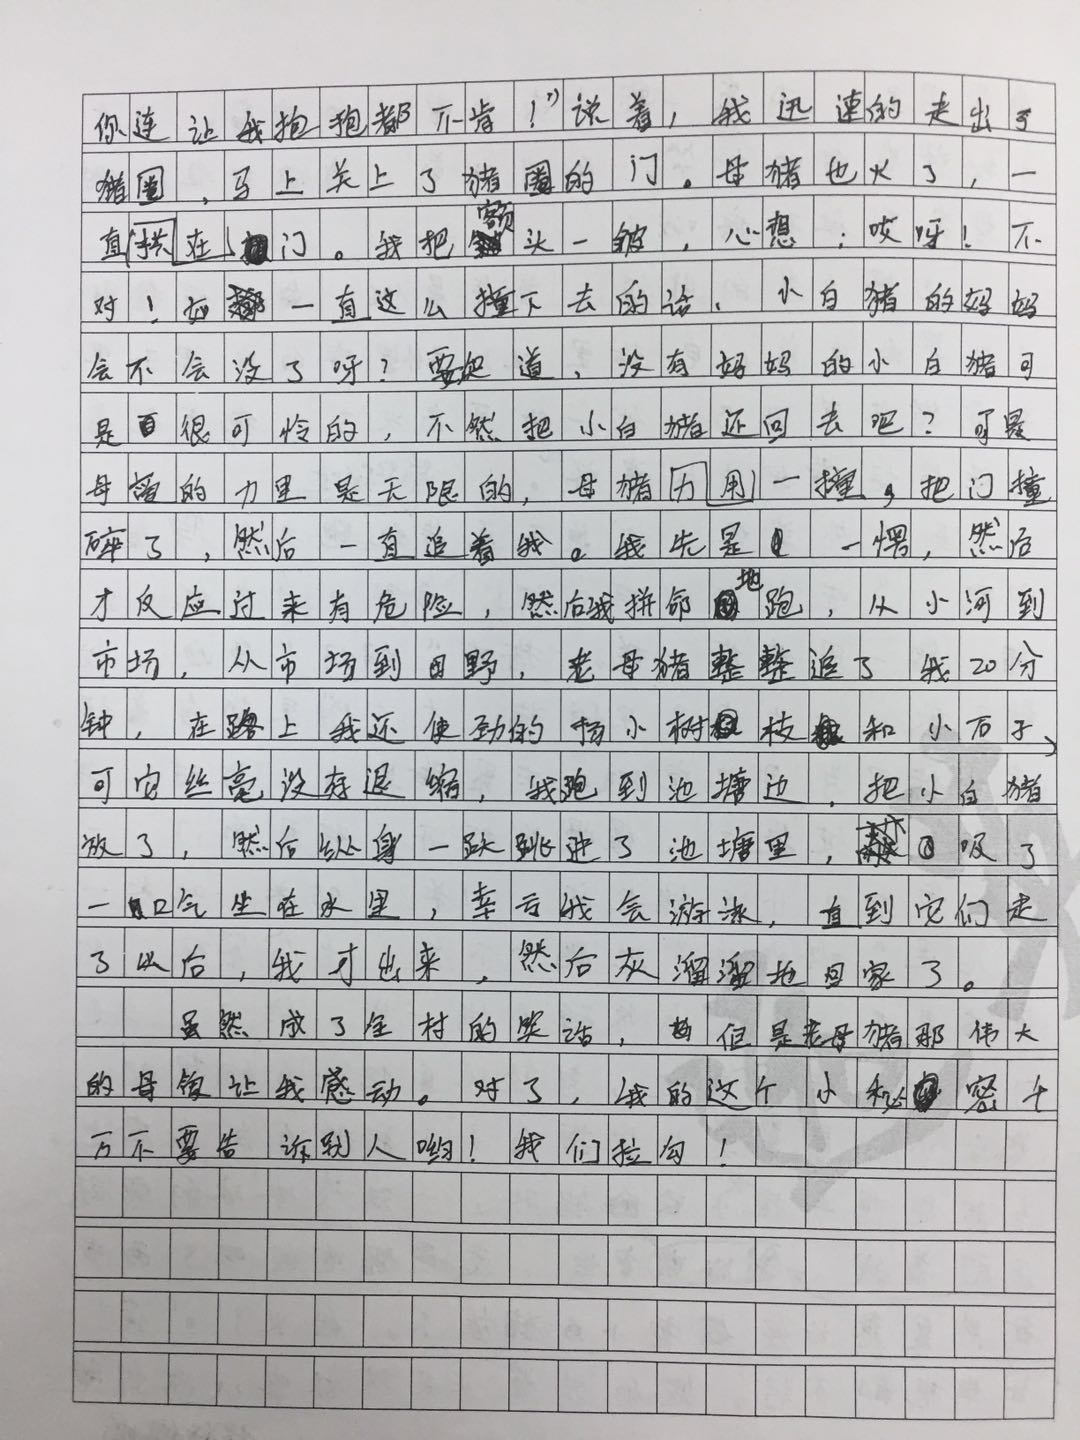 你连让我抱抱都不肯！”说着，我迅速的走出了
猪圈，马上关上了猪圈的门。母猪也火了，一
直拱在门。我把额头一皱，心想：哎呀！不
对！如一直这么撞下去的话，小白猪的妈妈
会不会没了呀？要知道，没有妈妈的小白猪可
是很可怜的，不然把小白猪还回去吧？可是
母猪的力里是无限的，母猪历用一撞，把门撞
碎了，然后一直追着我。我先是一愣，然后
才反应过来有危险，然后我拼命地跑，从小河到
市场，从市场到田野，老母猪整整追了我20分
钟，在路上我还使劲的扬小树枝和小石子，
可它丝毫没存退缩，我跑到池塘边，把小白猪
放了，然后纵身一跃跳进了池塘里，吸了
一口气坐在水里，幸亏我会游泳，直到它们走
了以后，我才出来，然后灰溜溜地回家了。
虽然成了全村的笑话，但是老母猪那伟大
的母爱让我感动。对了，我的这个小秘密千
万不要告诉别人哟！我们拉勾！